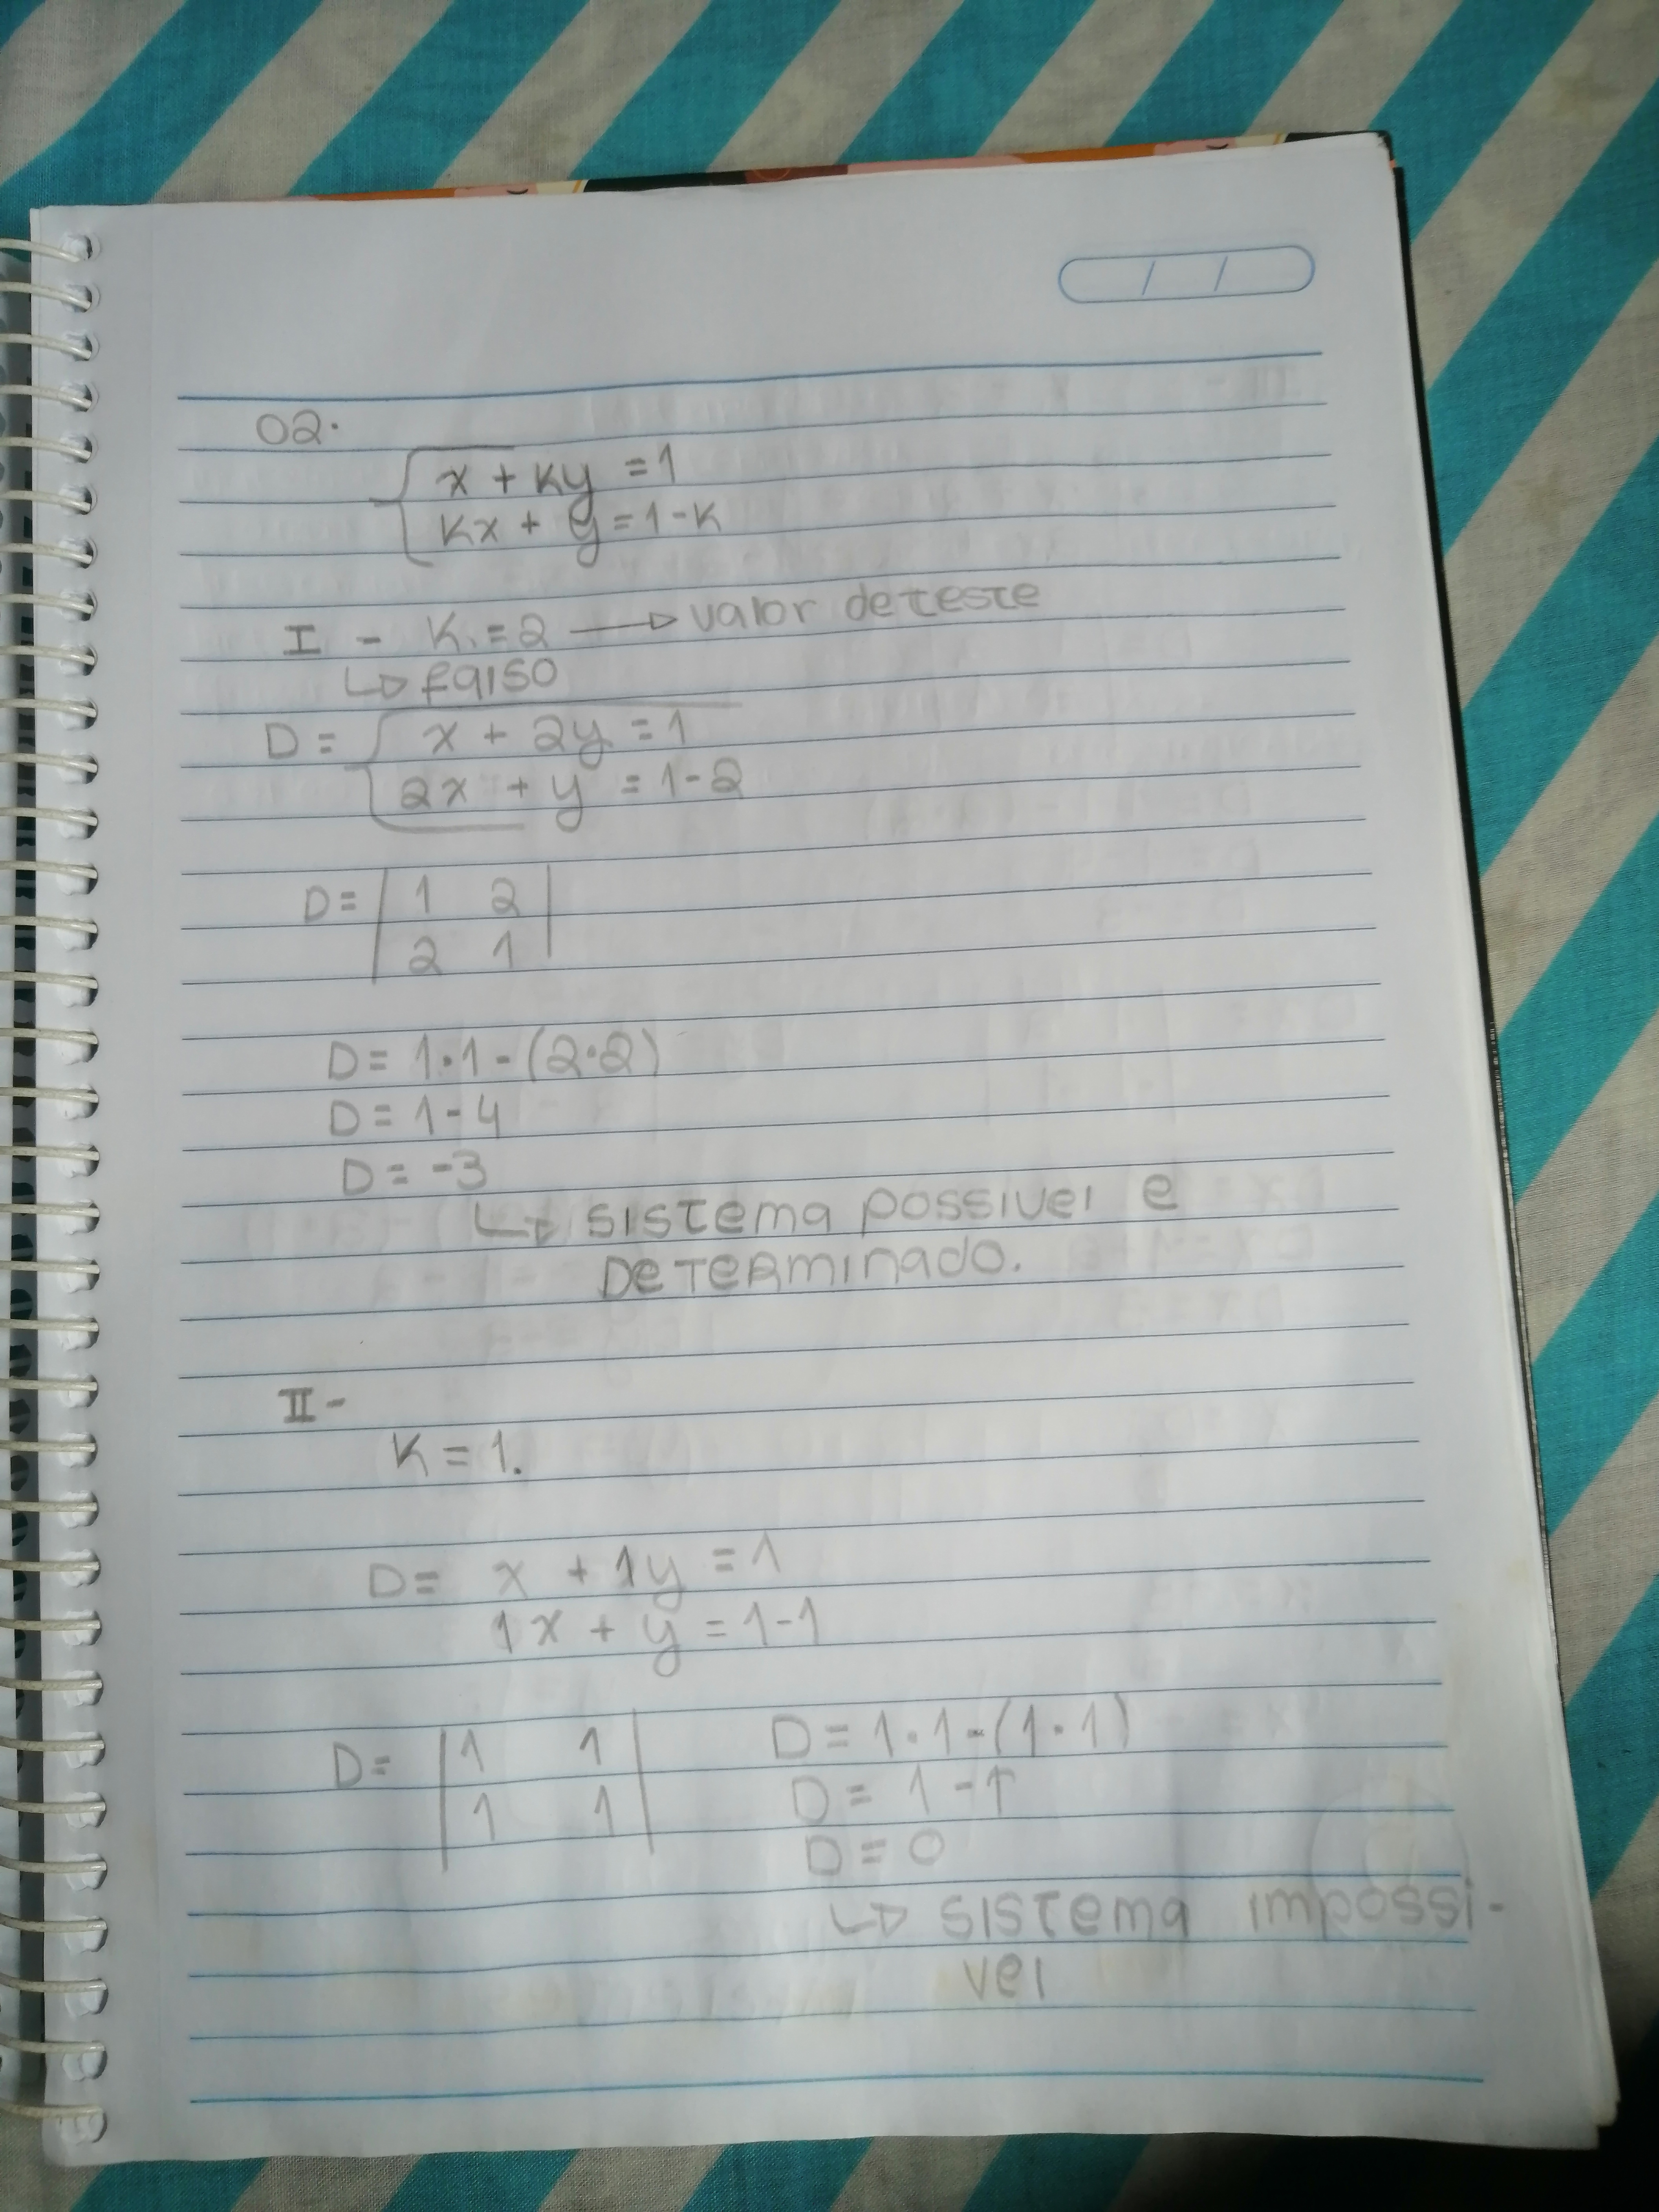 02.
x + Ky = 1
Kx + y = 1 - K
I - K = 2 → valor de teste
↳ falso
D = x + 2y = 1
2x + y = 1 - 2
D = | 1 2 |
| 2 1 |
D = 1 · 1 - (2 · 2)
D = 1 - 4
D = -3
↳ sistema possivel e
DeTeRminado.
II -
K = 1.
D = x + 1y = 1
1x + y = 1 - 1
D = | 1 1 |
| 1 1 |
D = 1 · 1 - (1 · 1)
D = 1 - 1
D = 0
↳ sistema impossi-
vel